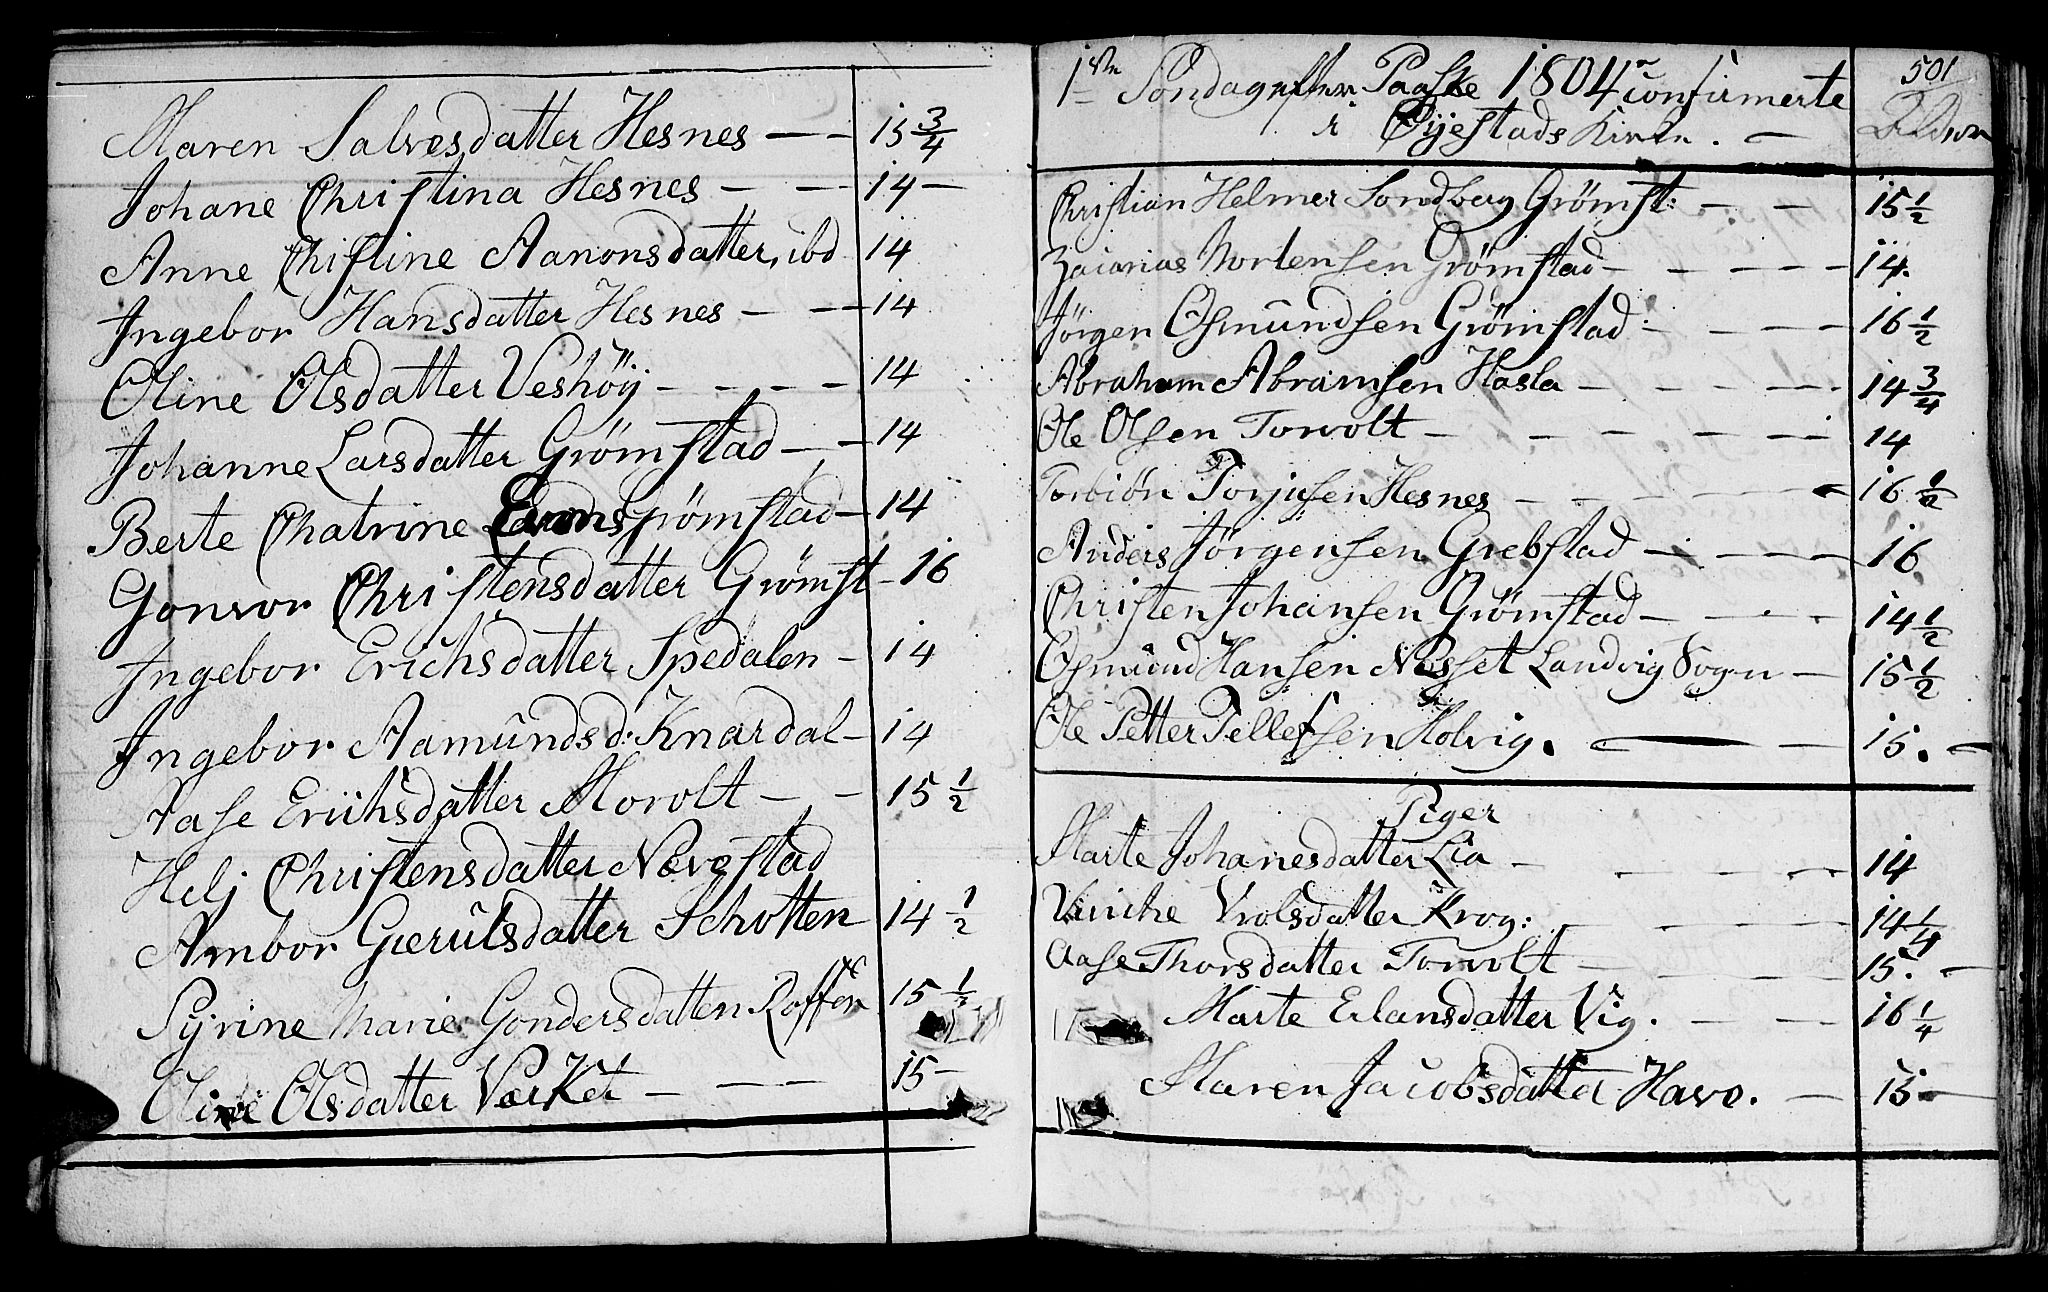 Maren Salvesdatter Hesnes — — 15 3/4
Johane Christina Hesnes — — 14 —
Anne Chistine Aanonsdatter, ibd 14
Ingebor Hansdatter Hesnes — — 14
Oline Olsdatter Veshöÿ — — — — 14
Johanne Larsdatter Grömstad — — 14
Berte Chatrine Grömstad — 14
Gonvor Christensdatter Grömst — 16
Ingebor Erichsdatter Spedalen — 14
Ingebor Aamundsd: Knardal — 14
Aase Erichsdatter Morvolt — — 15 1/2
Helj Christensdatter Nævestad
Ambor Gierulsdatter Schotten 14 1/2
Syrine Marie Gondersdatter 15 1/2
Oline Olsdatter Værket — — — 15 —
501
1ste Söndag efter Paaske 1804 confirmerte
i Øÿestads Kirke. — Alder
Christian Helmer Sondberg Grömst: — — 15 1/2
Zacarias Mortensen Grömstad — — — — — 14.
Jörgen Osmundsen Grömstad: — — — — 16 1/2
Abraham Abramsen Hasla — — — — — 14 3/4
Ole Olsen Torvolt — — — — — 14
Torbiön Torjusen Hesnes — — — — — 16 1/2
Anders Jörgensen Grebstad — — — — 16
Christen Johansen Grömstad — — — — 14 1/2
Osmund Hansen Nesset Landvig Sogn — 15 1/2
Ole Petter Tellefsen Holvig. — — 15. —
Piger
Marte Johanesdatter Lia — — — — 14
Vrolsdatter Krog: — — — — 14 1/4
Aase Thorsdatter Torvolt — — — — 15. —
Marte Erlansdatter Vig. — — — 16 1/4
Maren Jacobsdatter Have. — 15 —